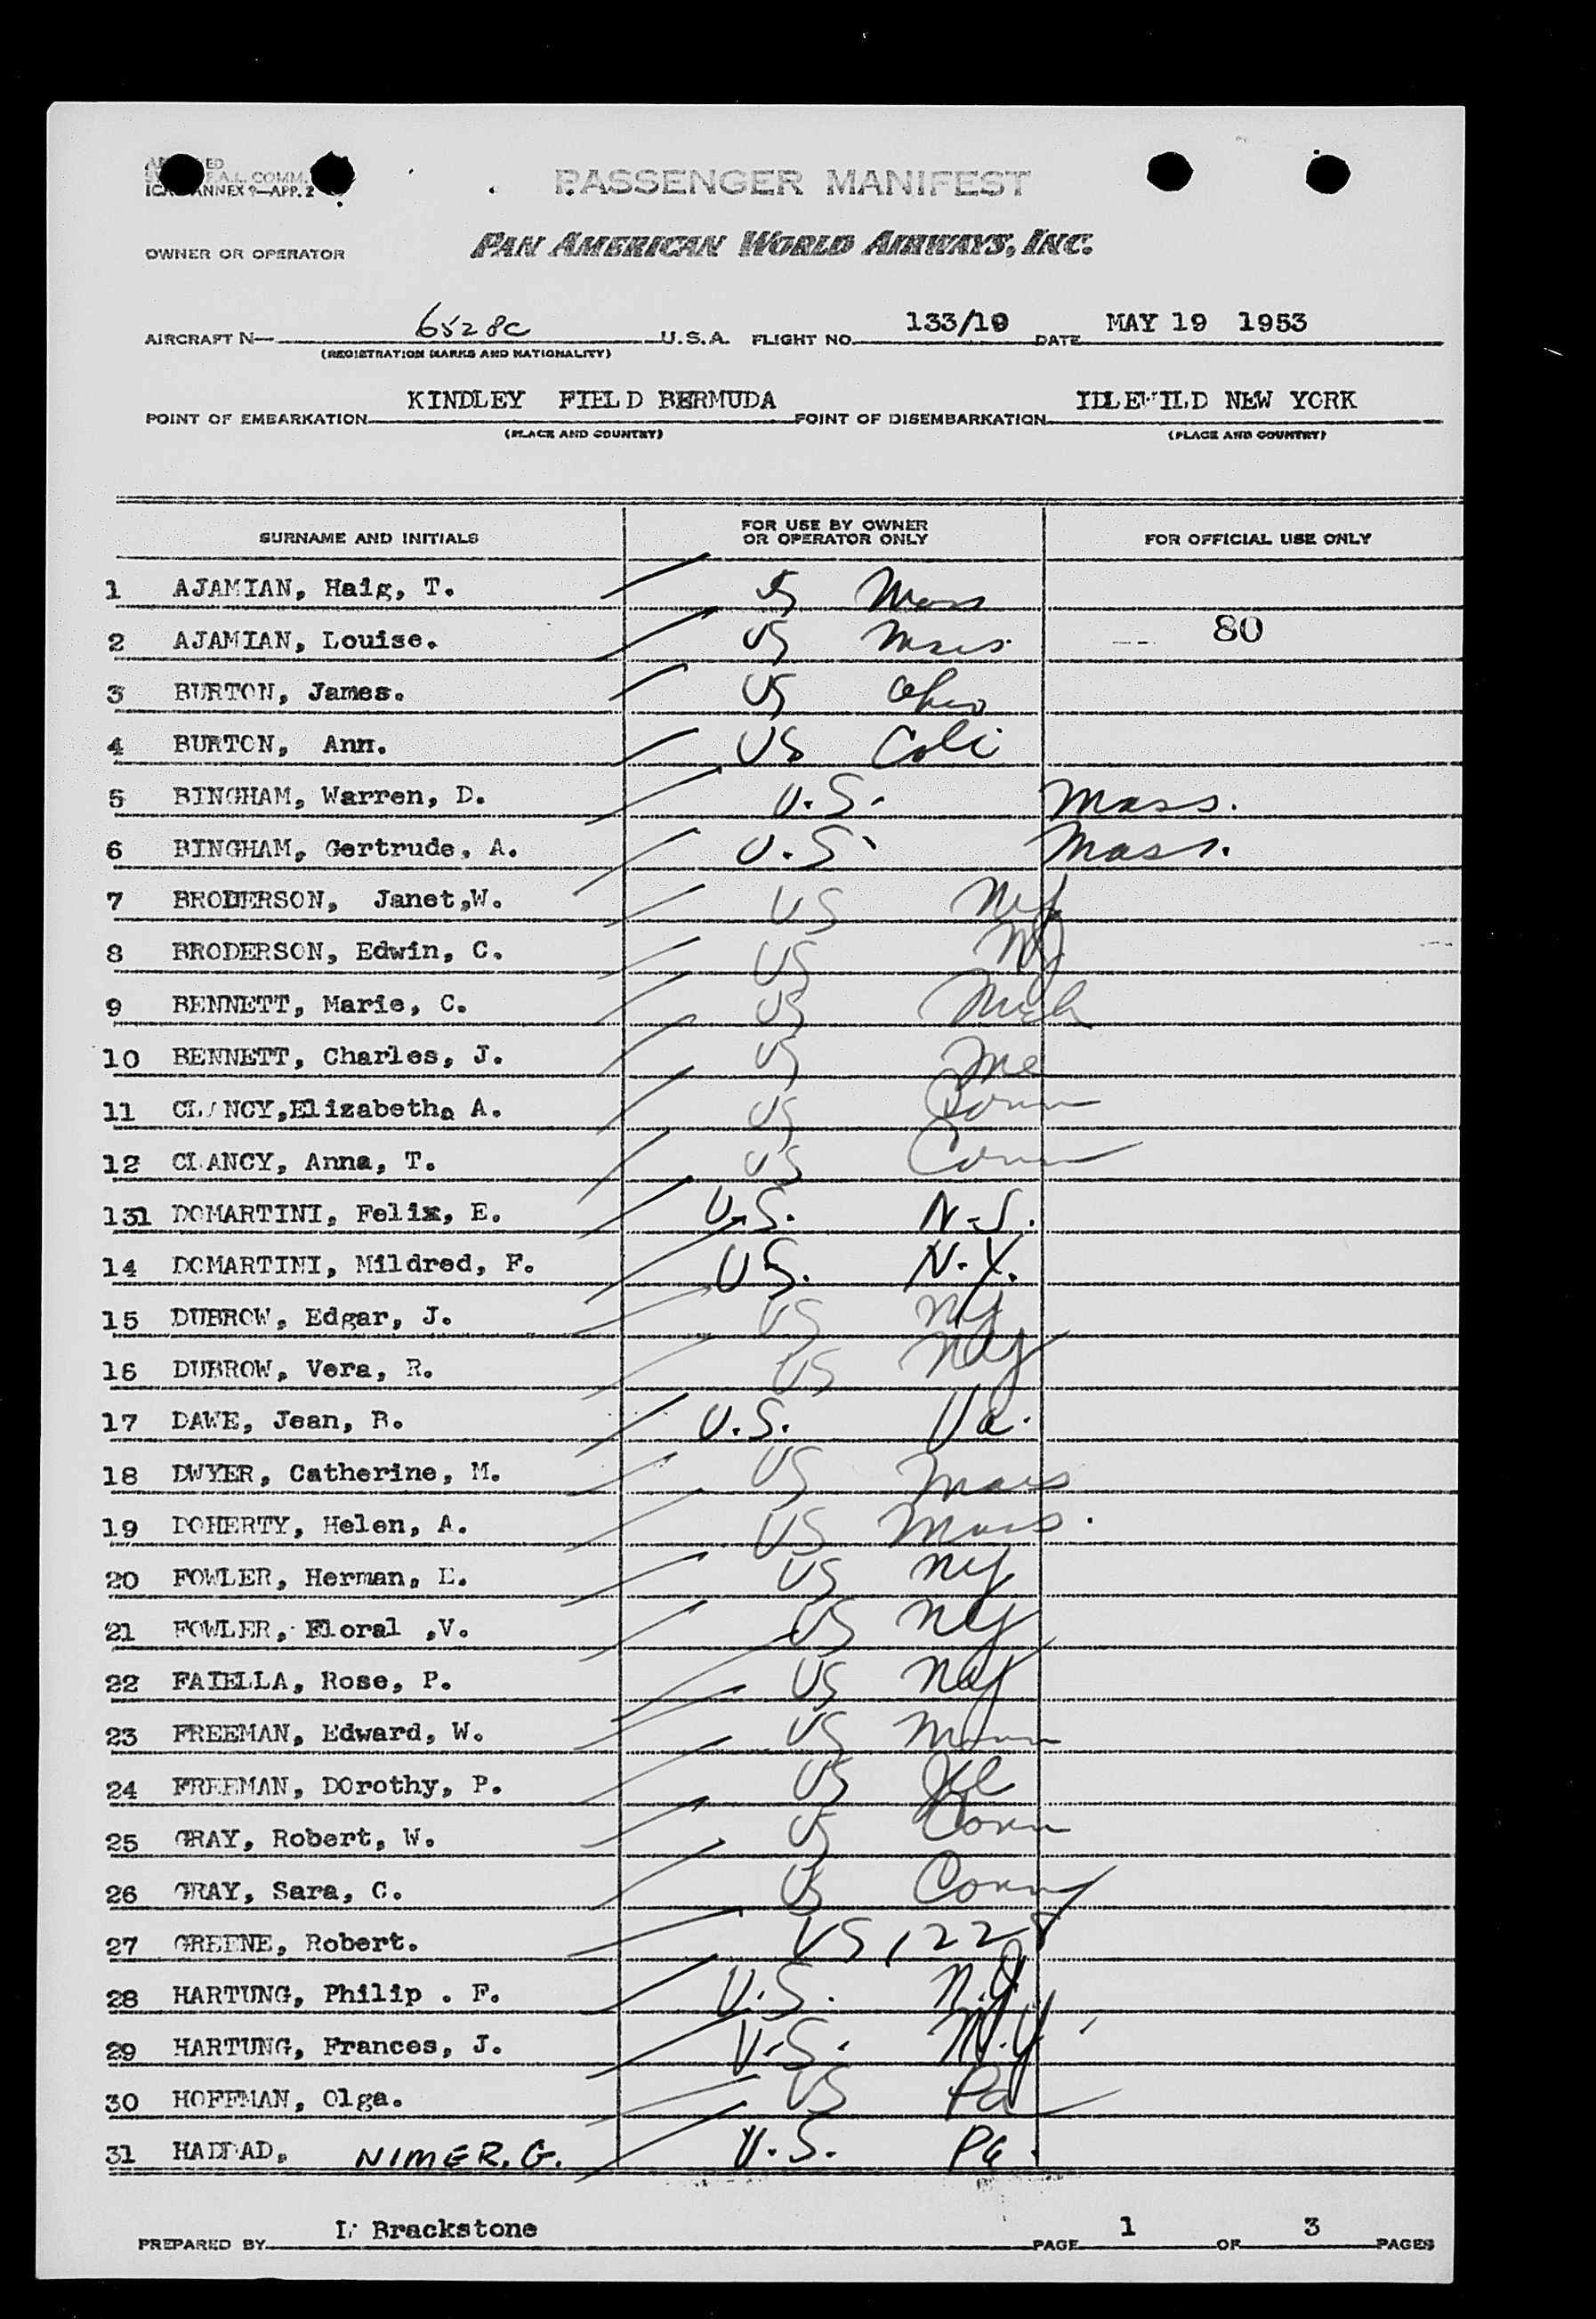 ANNEX 9—APP. 2
PASSENGER MANIFEST
OWNER OR OPERATOR PAN AMERICAN WORLD AIRWAYS, INC.
AIRCRAFT N— 6528C U.S.A. FLIGHT NO. 133/19 DATE MAY 19 1953
(REGISTRATION MARKS AND NATIONALITY)
POINT OF EMBARKATION KINDLEY FIELD BERMUDA POINT OF DISEMBARKATION IDLEWILD NEW YORK
(PLACE AND COUNTRY) (PLACE AND COUNTRY)
SURNAME AND INITIALS FOR USE BY OWNER OR OPERATOR ONLY FOR OFFICIAL USE ONLY
1 AJAMIAN, Haig, T. US Mass
2 AJAMIAN, Louise. US Mass 80
3 BURTON, James. US Ohio
4 BURTON, Ann. US Cali
5 BINGHAM, Warren, D. U.S. Mass.
6 BINGHAM, Gertrude, A. U.S. Mass.
7 BRODERSON, Janet,W. US NY
8 BRODERSON, Edwin, C. US NJ
9 BENNETT, Marie, C. US Mich
10 BENNETT, Charles, J. US Me
11 CLANCY,Elizabeth, A. US Conn
12 CLANCY, Anna, T. US Conn
131 DOMARTINI, Felix, E. U.S. N.J.
14 DOMARTINI, Mildred, F. U.S. N.Y.
15 DUBROW, Edgar, J. US NY
16 DUBROW, Vera, R. US NY
17 DAWE, Jean, B. U.S. Va.
18 DWYER, Catherine, M. US Mass
19 DOHERTY, Helen, A. US Mass.
20 FOWLER, Herman, E. US NY
21 FOWLER, Floral ,V. US NY
22 FAIELLA, Rose, P. US NY
23 FREEMAN, Edward, W. US Minn
24 FREEMAN, DOrothy, P. US Ill
25 GRAY, Robert, W. US Conn
26 GRAY, Sara, C. US Conn
27 GREENE, Robert. US 1228
28 HARTUNG, Philip . F. U.S. N.J.
29 HARTUNG, Frances, J. U.S. N.Y.
30 HOFFMAN, Olga. US Pa
31 HADDAD, NIMER. G. U.S. Pa.
PREPARED BY L Brackstone PAGE 1 OF 3 PAGES